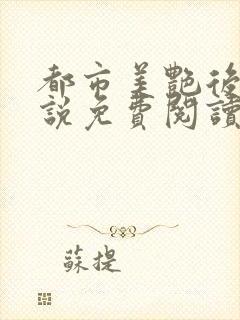 都市美艷後
說免費閱讀
蘇提